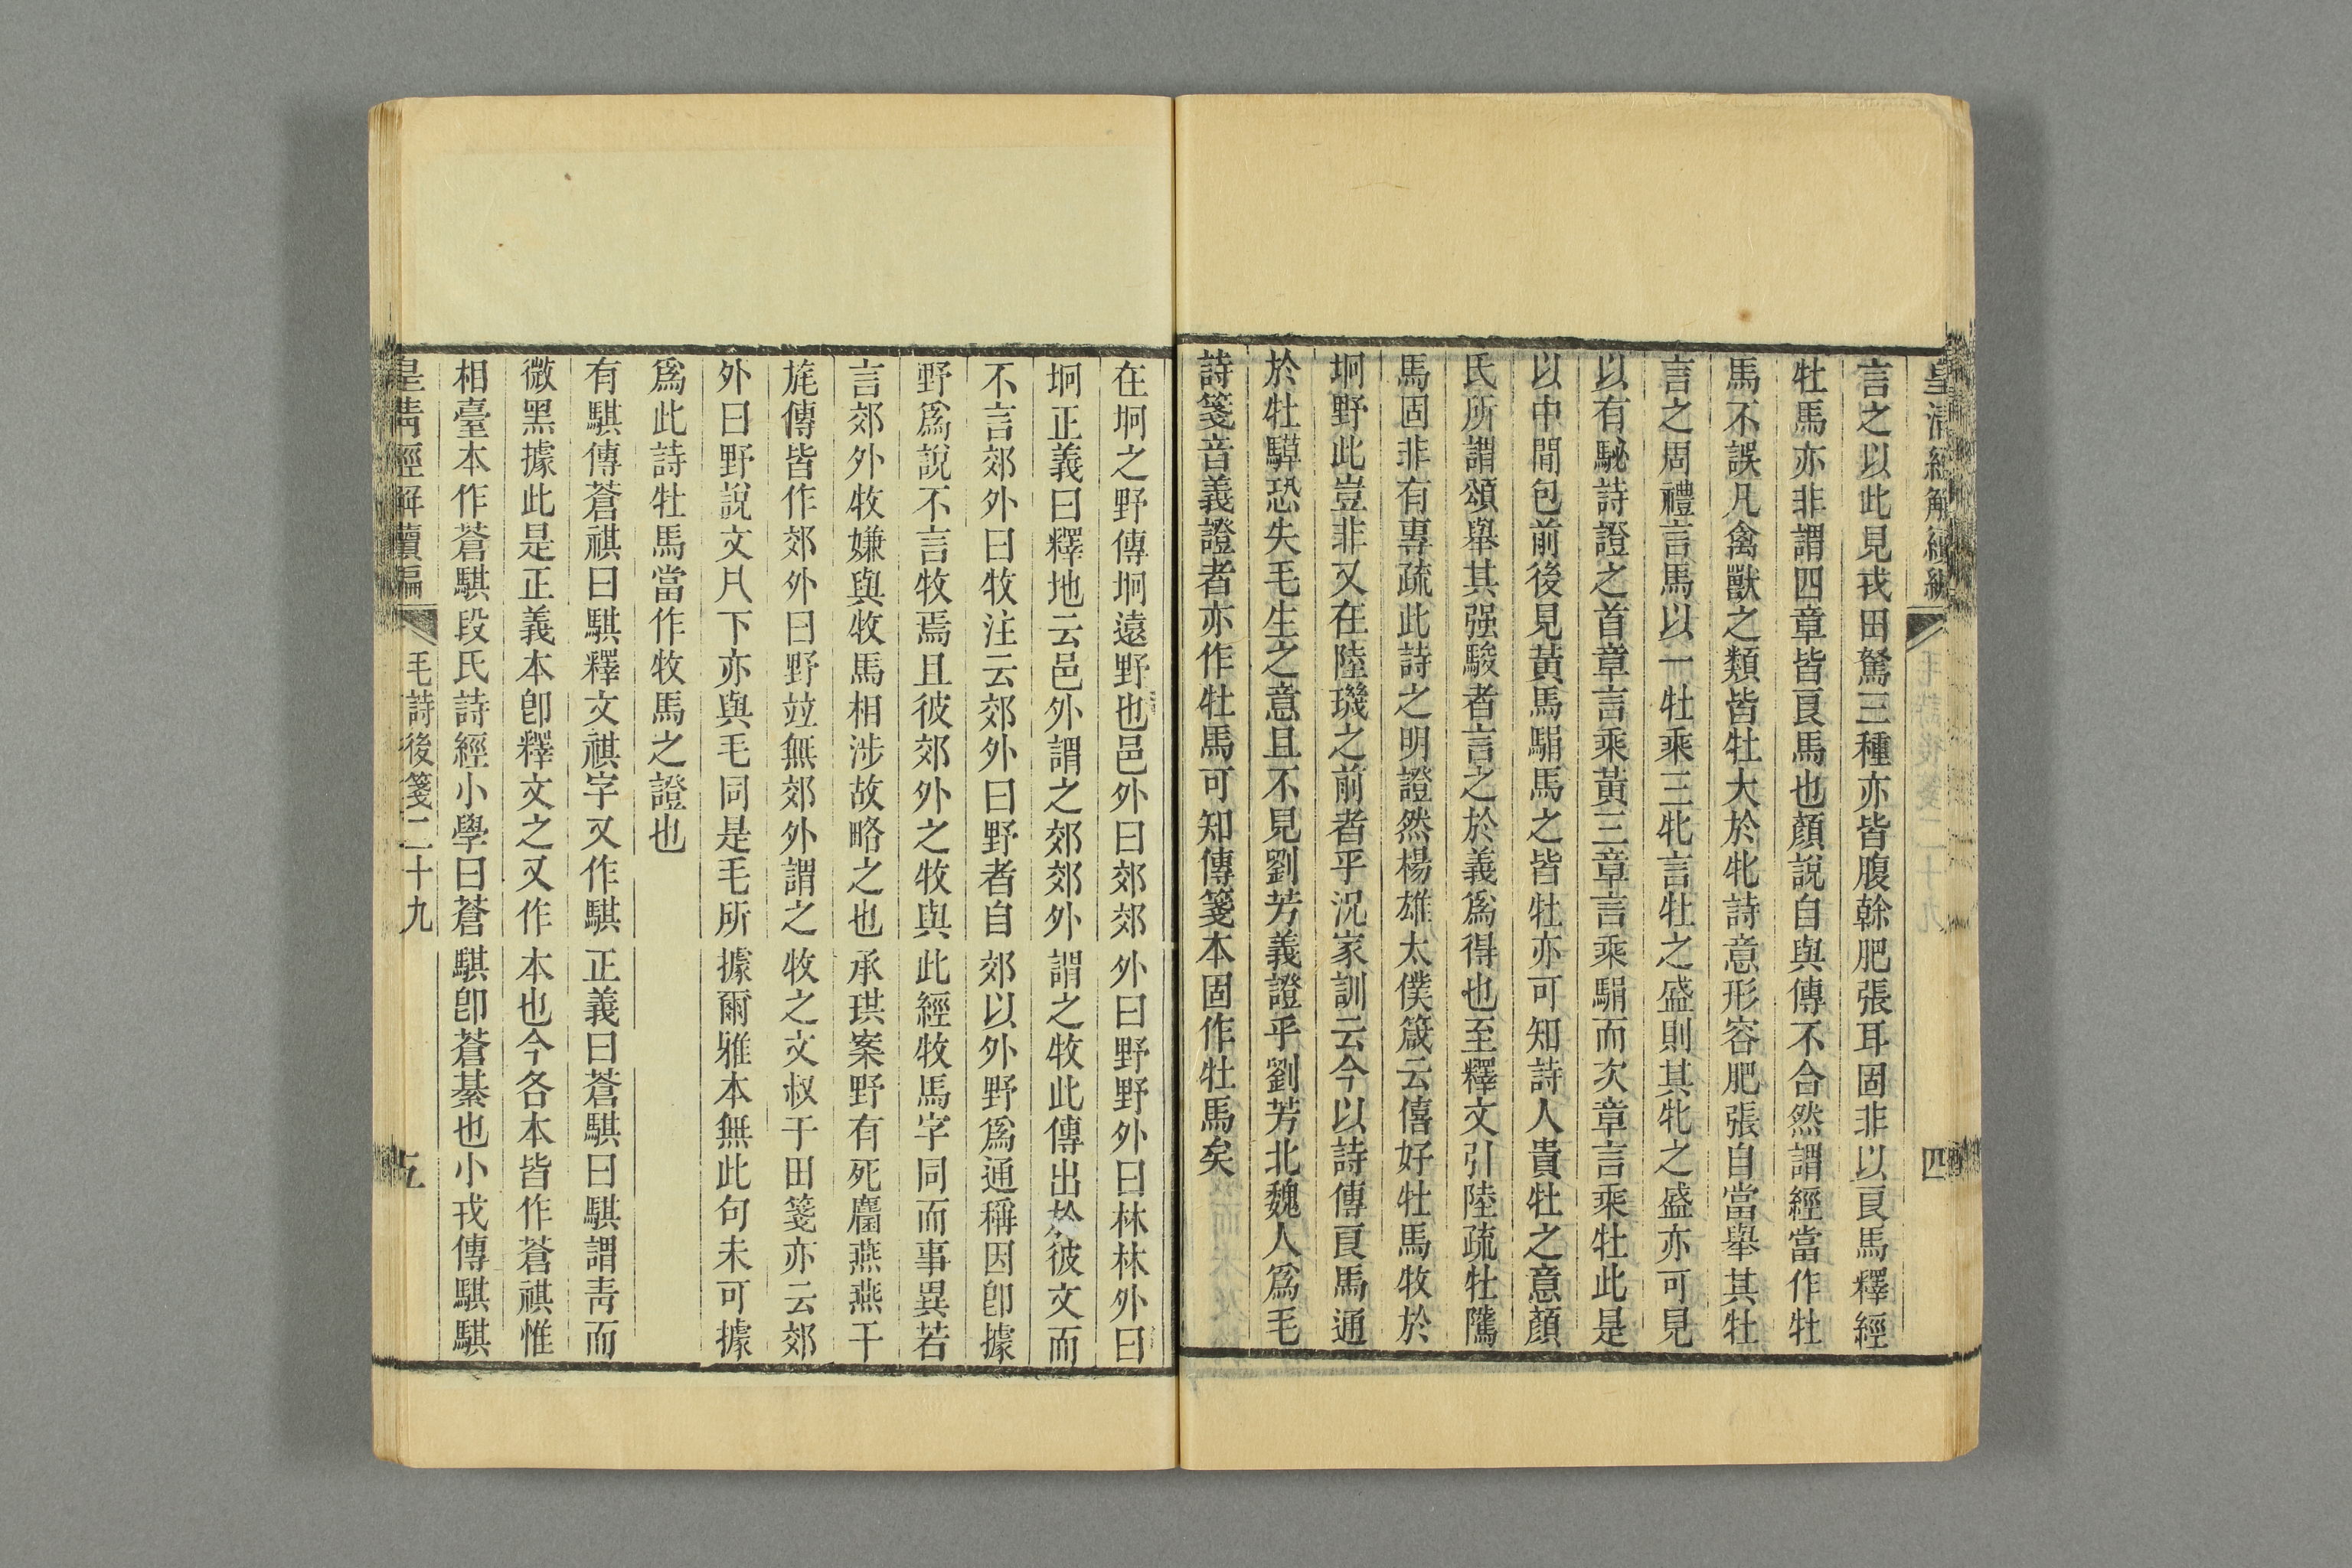 皇清經解續編 毛詩後箋二十九 四
言之以此見戎田駑三種亦皆腹榦肥張耳固非以良馬釋經
牡馬亦非謂四章皆良馬也顏說自與傳不合然謂經當作牡
馬不誤凡禽獸之類皆牡大於牝詩意形容肥張自當舉其牡
言之周禮言馬以一牡乘三牝言牡之盛則其牝之盛亦可見
以有駜詩證之首章言乘黃三章言乘駽而次章言乘牡此是
以中閒包前後見黃馬駽馬之皆牡亦可知詩人貴牡之意顏
氏所謂頌舉其强駿者言之於義爲得也至釋文引陸疏牡騭
馬固非有專疏此詩之明證然楊雄太僕箴云僖好牡馬牧於
坰野此豈非又在陸璣之前者乎況家訓云今以詩傳良馬通
於牡騲恐失毛生之意且不見劉芳義證乎劉芳北魏人爲毛
詩箋音義證者亦作牡馬可知傳箋本固作牡馬矣
在坰之野傳坰遠野也邑外曰郊郊外曰野野外曰林林外曰
坰正義曰釋地云邑外謂之郊郊外謂之牧此傳出於彼文而
不言郊外曰牧注云郊外曰野者自郊以外野爲通稱因卽據
野爲說不言牧焉且彼郊外之牧與此經牧馬字同而事異若
言郊外牧嫌與牧馬相涉故略之也承珙案野有死麕燕燕干
旄傳皆作郊外曰野竝無郊外謂之牧之文叔于田箋亦云郊
外曰野說文冂下亦與毛同是毛所據爾雅本無此句未可據
爲此詩牡馬當作牧馬之證也
有騏傳蒼祺曰騏釋文祺字又作騏正義曰蒼騏曰騏謂靑而
微黑據此是正義本卽釋文之又作本也今各本皆作蒼祺惟
相臺本作蒼騏段氏詩經小學曰蒼騏卽蒼綦也小戎傳騏騏
皇淸經解續編 毛詩後箋二十九 五